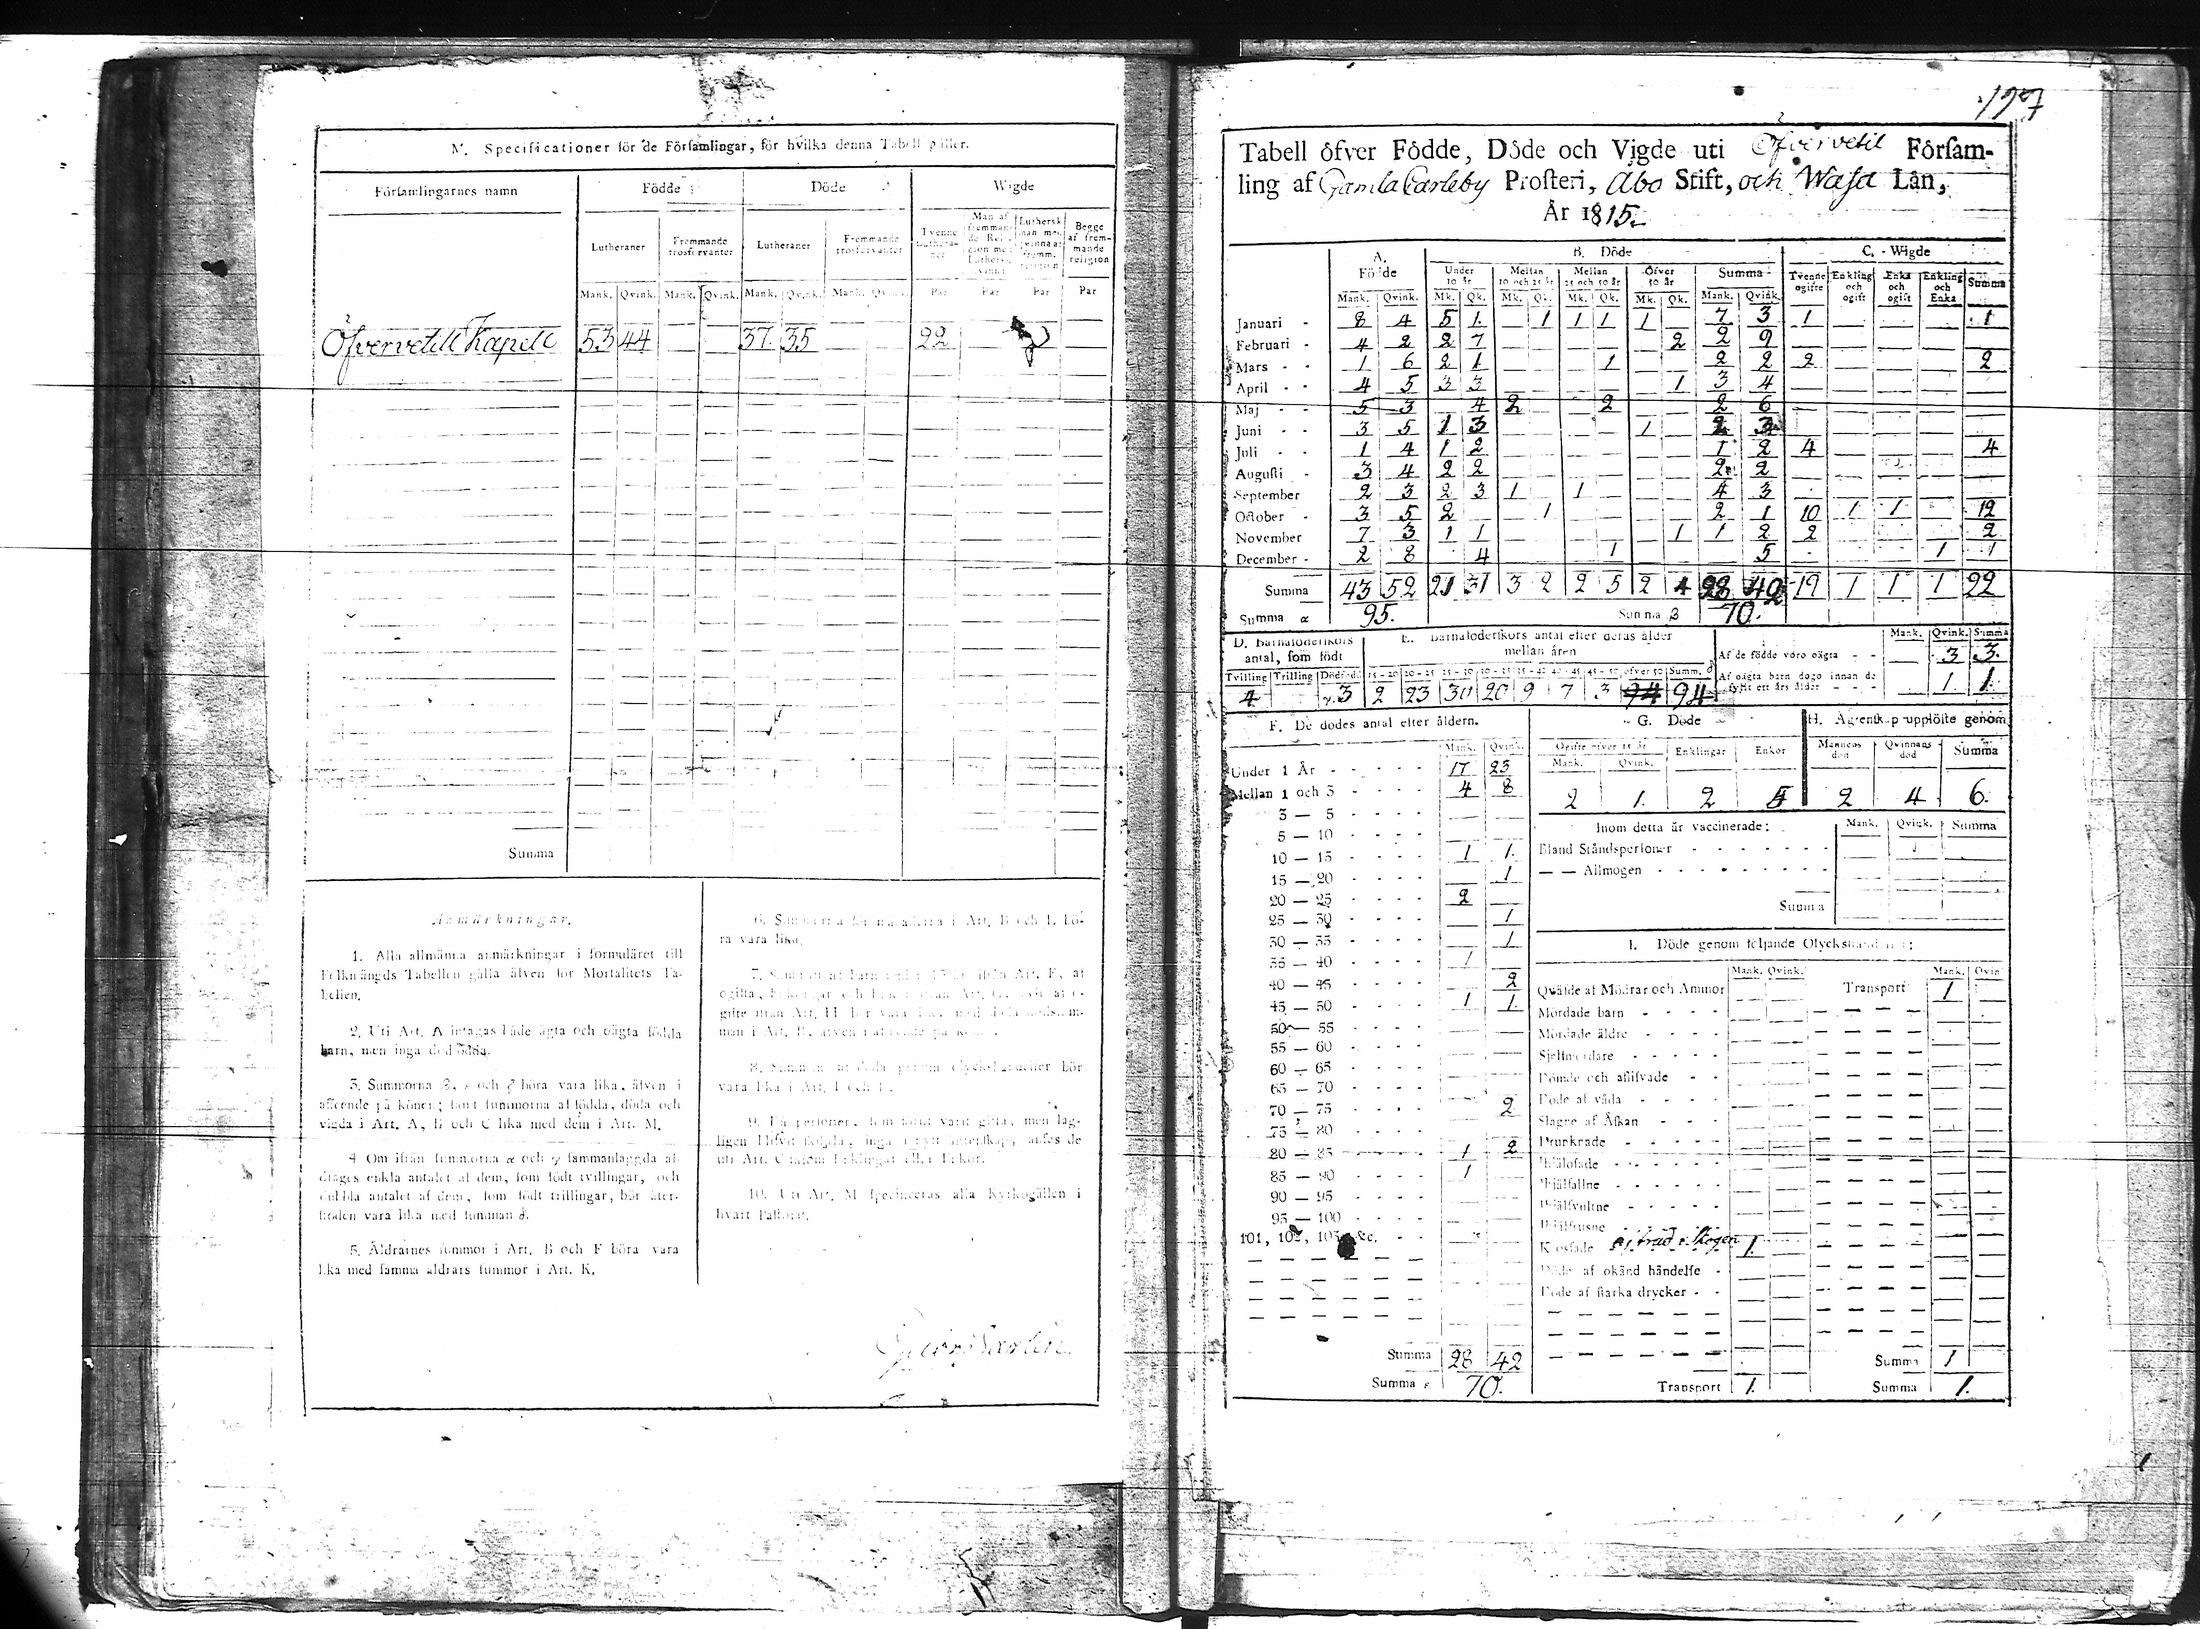 M. Specificationer för de Församlingar, för hvilka denna Tabell gäller.
Församlingarnes namn Födde Döde Wigde
Lutheraner Fremmande trosförvanter Lutheraner Fremmande trosförvanter Tvenne Lutheraner Man af fremmande Religion med Luthersk qvinna Luthersk man med qvinna af fremm. religion Begge af fremmande religion
Mank. Qvink. Mank. Qvink. Mank. Qvink. Mank. Qvink. Par Par Par Par
Öfvervetill Kapell 53 44 37 35 22
Summa
Anmärkningar.
1. Alla allmänna anmärkningar i formuläret till
Folkmängds Tabellen gälla äfven för Mortalitets Ta-
bellen.
2. Uti Art. A intagas både ägta och oägta födda
barn, men inga dödfödda.
3. Summorna β, ε och ζ böra vara lika, äfven i
afseende på könen; samt summorna af födda, döda och
vigda i Art. A, B och C lika med dem i Art. M.
4 Om ifrån summorna α och γ sammanlaggda af-
drages enkla antalet af dem, som födt tvillingar, och
dubbla antalet af dem, som födt trillingar, bör åter-
stoden vara lika med summan δ.
5. Åldrarnes summor i Art. B och F böra vara
lika med samma åldrars summor i Art. K.
6. Summorna för månaderna i Art. B och L bö-
ra vara lika.
8. Summan af döda genom olyckshändelser bör
vara lika i Art. I och L.
10. Uti Art. M specificeras alla Kyrkogällen i
hvart Pastorat.
Tabell öfver Födde, Döde och Vigde uti Öfvervetil Församling
af Gamla Carleby Prosteri, Åbo Stift, och Wasa Län,
År 1815.
A. Födde B. Döde C. Wigde
Under 10 år Mellan 10 och 25 år Mellan 25 och 50 år Öfver 50 år Summa Tvenne ogifte Enkling och ogift Enka och ogift Enkling och Enka Summa
Mank. Qvink. Mk. Qk. Mk. Qk. Mk. Qk. Mk. Qk. Mank. Qvink.
Januari 8 4 5 1 1 1 1 1 7 3 1 1
Februari 4 2 2 7 2 2 9
Mars 1 6 2 1 1 2 2 2 2
April 4 5 3 3 1 3 4
Maj 5 3 4 2 2 2 6
Juni 3 5 1 3 1 2 3
Juli 1 4 1 2 1 2 4 4
Augusti 3 4 2 2 2 2
September 2 3 2 3 1 1 4 3
October 3 5 2 1 2 1 10 1 1 12
November 7 3 1 1 1 1 2 2 2
December 2 8 4 1 5 1 1
Summa 43 52 21 31 3 2 2 5 2 4 28 42 19 1 1 1 22
Summa α 95. Summa β 70.
D. Barnaföderskors antal, som födt
Tvilling Trilling Dödfödt
4 γ. 3
E. Barnaföderskors antal efter deras ålder mellan åren
15-20 20-25 25-30 30-35 35-40 40-45 45-50 öfver 50 Summ. δ
2 23 30 20 9 7 3 94 94
Mank. Qvink. Summa
Af de födde voro oägta 3 3.
Af oägta barn dogo innan de fyllt ett års ålder 1 1.
F. De dödes antal efter åldern.
Mank. Qvink.
Under 1 År 17 23
Mellan 1 och 3 4 8
3 — 5
5 — 10
10 — 15 1 1.
15 — 20 1
20 — 25 2
25 — 30 1
30 — 35 1
35 — 40 1
40 — 45 2
45 — 50 1 1.
50 — 55
55 — 60
60 — 65
65 — 70
70 — 75 2
75 — 80
80 — 85 1 2
85 — 90 1
90 — 95
95 — 100
101, 102, 103 &c.
Summa 28 42
Summa ε 70.
G. Döde
Ogifte öfver 15 år Enklingar Enkor
Mank. Qvink.
2 1. 2 5
H. Ägtenskap upplöste genom
Mannens död Qvinnans död Summa
2 4 6.
Inom detta år vaccinerade: Mank. Qvink. Summa
Bland Ståndspersoner
— — Allmogen
Summa
I. Döde genom följande Olyckshändelser:
Mank. Qvink. Mank. Qvin
Qväfde af Mödrar och Ammor Transport 1
Mördade barn
Mördade äldre
Sjelfmördare
Dömde och aflifvade
Döde af våda
Slagne af Åskan
Drunknade
Ihjälosade
Ihjälfallne
Ihjälsvultne
Ihjälfrusne
Krossade af träd i Skogen 1.
Döde af okänd händelse
Döde af starka drycker
Summa 1
Transport 1. Summa 1.